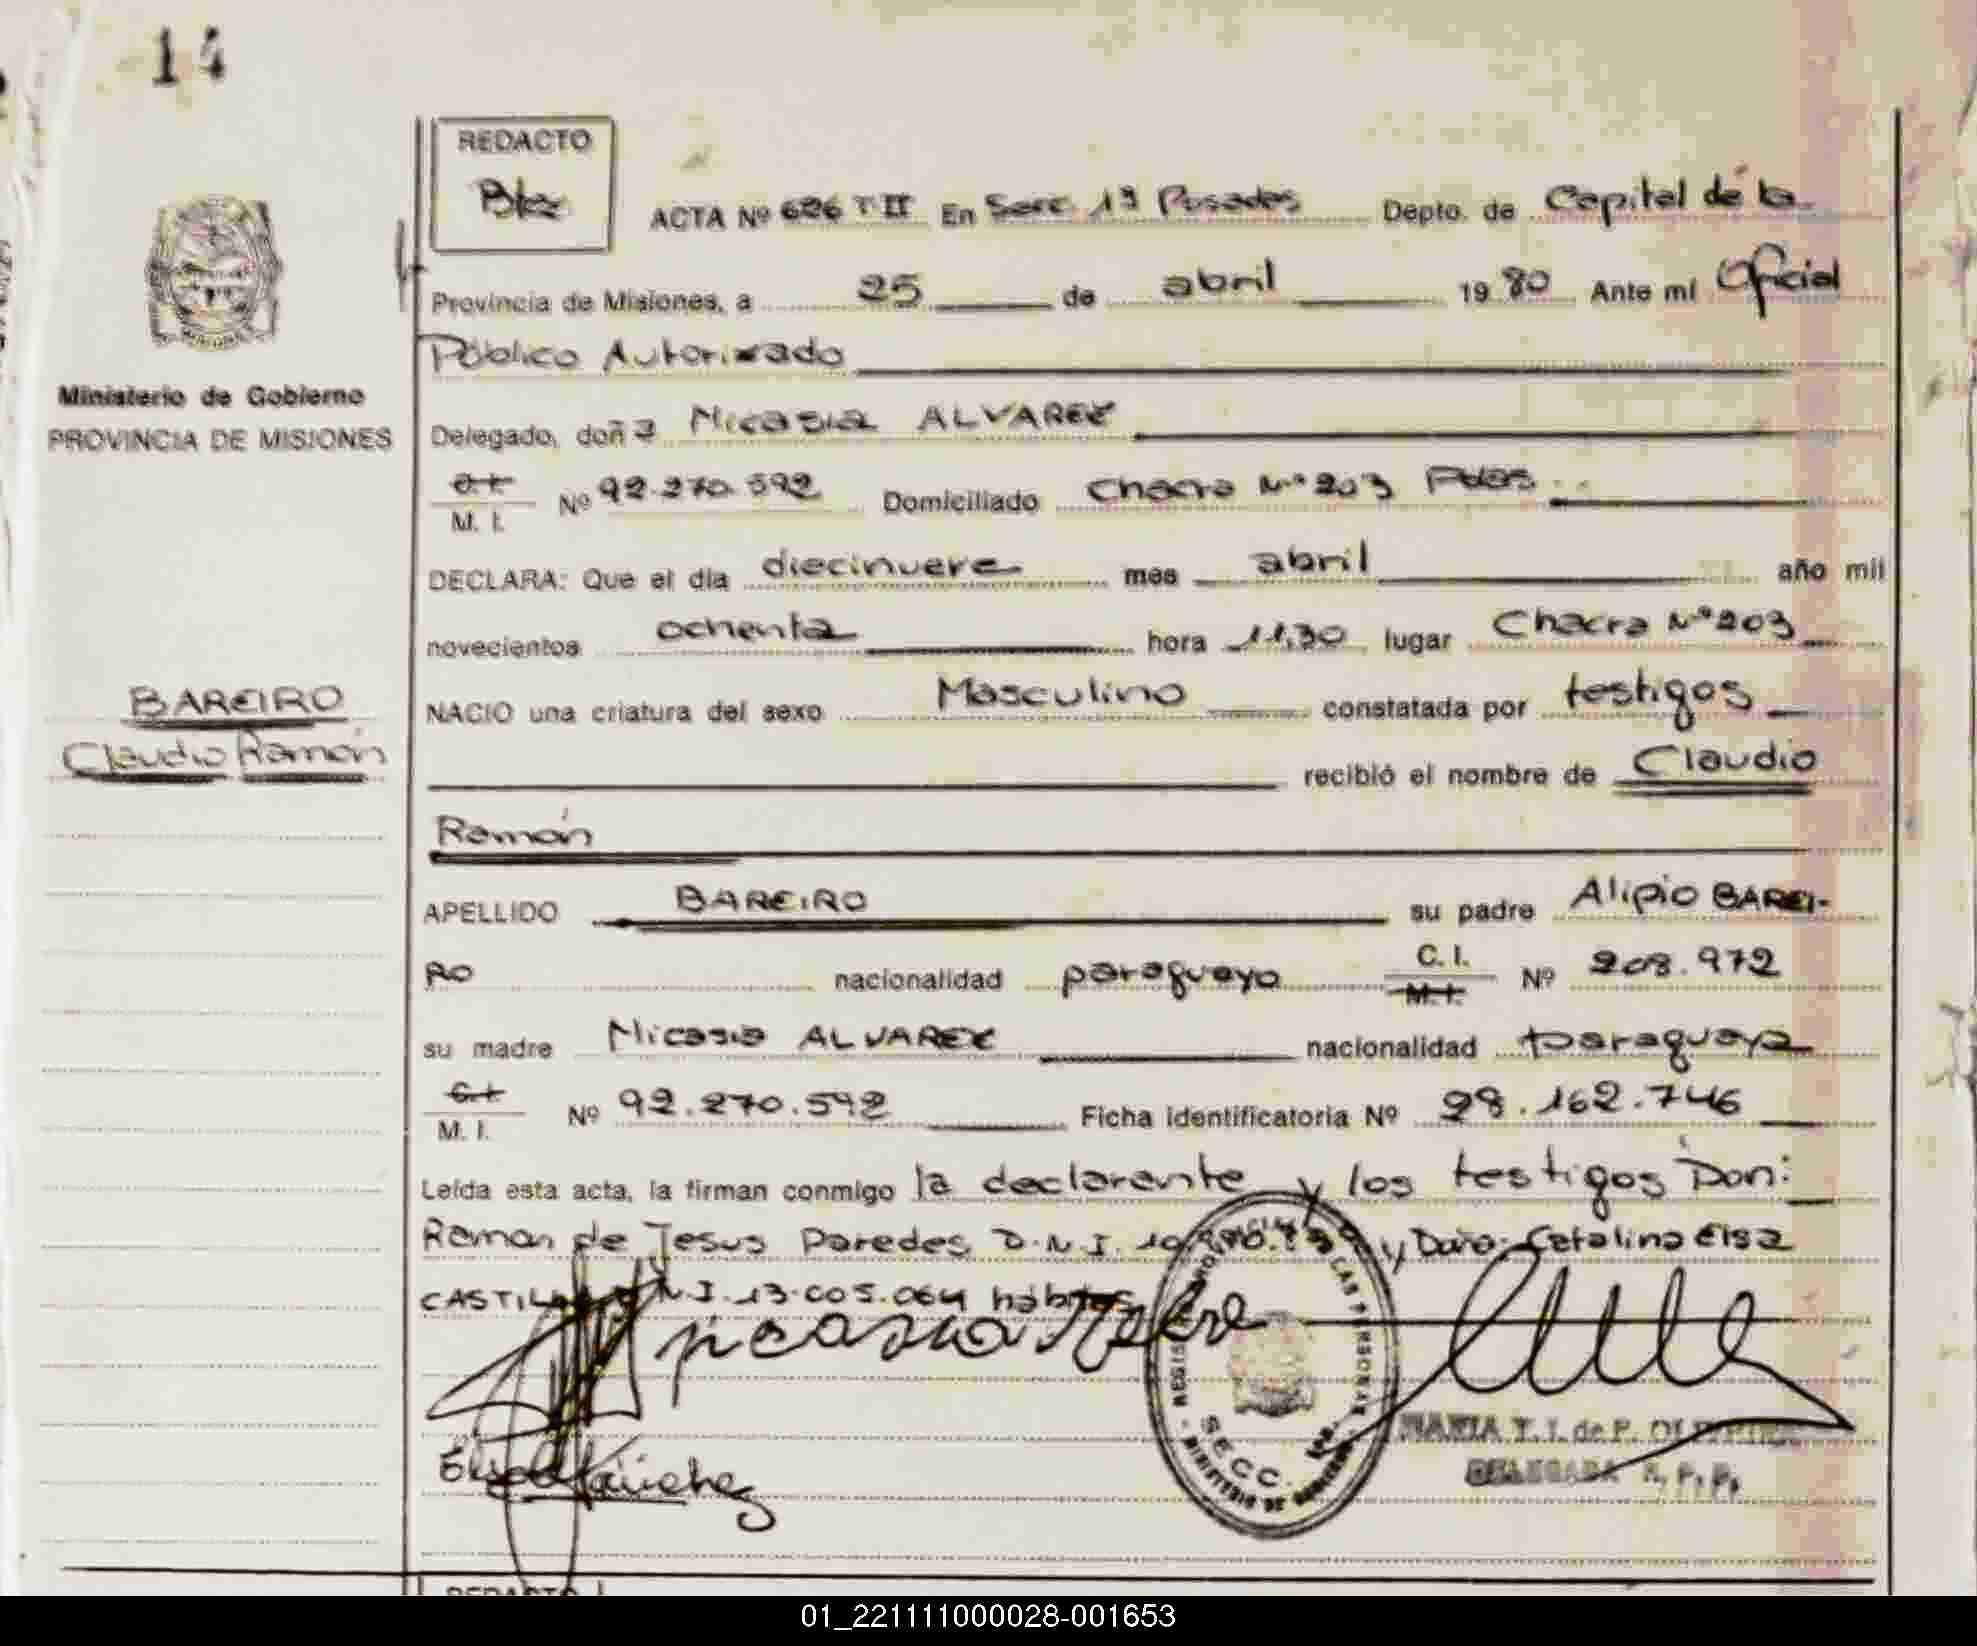 14
REDACTO
ACTA Nº 626 T II En Secc. 1ª Posadas Depto. de Capital de la
Provincia de Misiones, a 25 de abril 1980 Ante mí Oficial
Público Autorizado
Ministerio de Gobierno
PROVINCIA DE MISIONES
Delegado, doña Micasia ALVAREZ
C.I.
M. I. Nº 92.270.592 Domiciliado Chacra Nº 203 Pdas.
DECLARA: Que el día diecinueve mes abril año mil
novecientos ochenta hora 11,30 lugar Chacra Nº 203
BAREIRO
Claudio Ramón
NACIO una criatura del sexo Masculino constatada por testigos
recibió el nombre de Claudio
Ramón
APELLIDO BAREIRO su padre Alipio BAREI-
RO nacionalidad paraguayo C. I. Nº 208.972
M.I.
su madre Micasia ALVAREZ nacionalidad paraguaya
C.I.
M. I. Nº 92.270.592 Ficha identificatoria Nº 28.162.746
Leída esta acta, la firman conmigo la declarante y los testigos Don:
Ramon de Jesus Paredes D.N.I. y Doña: Catalina Elsa
13.005.064 hábiles
SECC.
DELEGADA R. P. P.
REDACTO
01_221111000028-001653